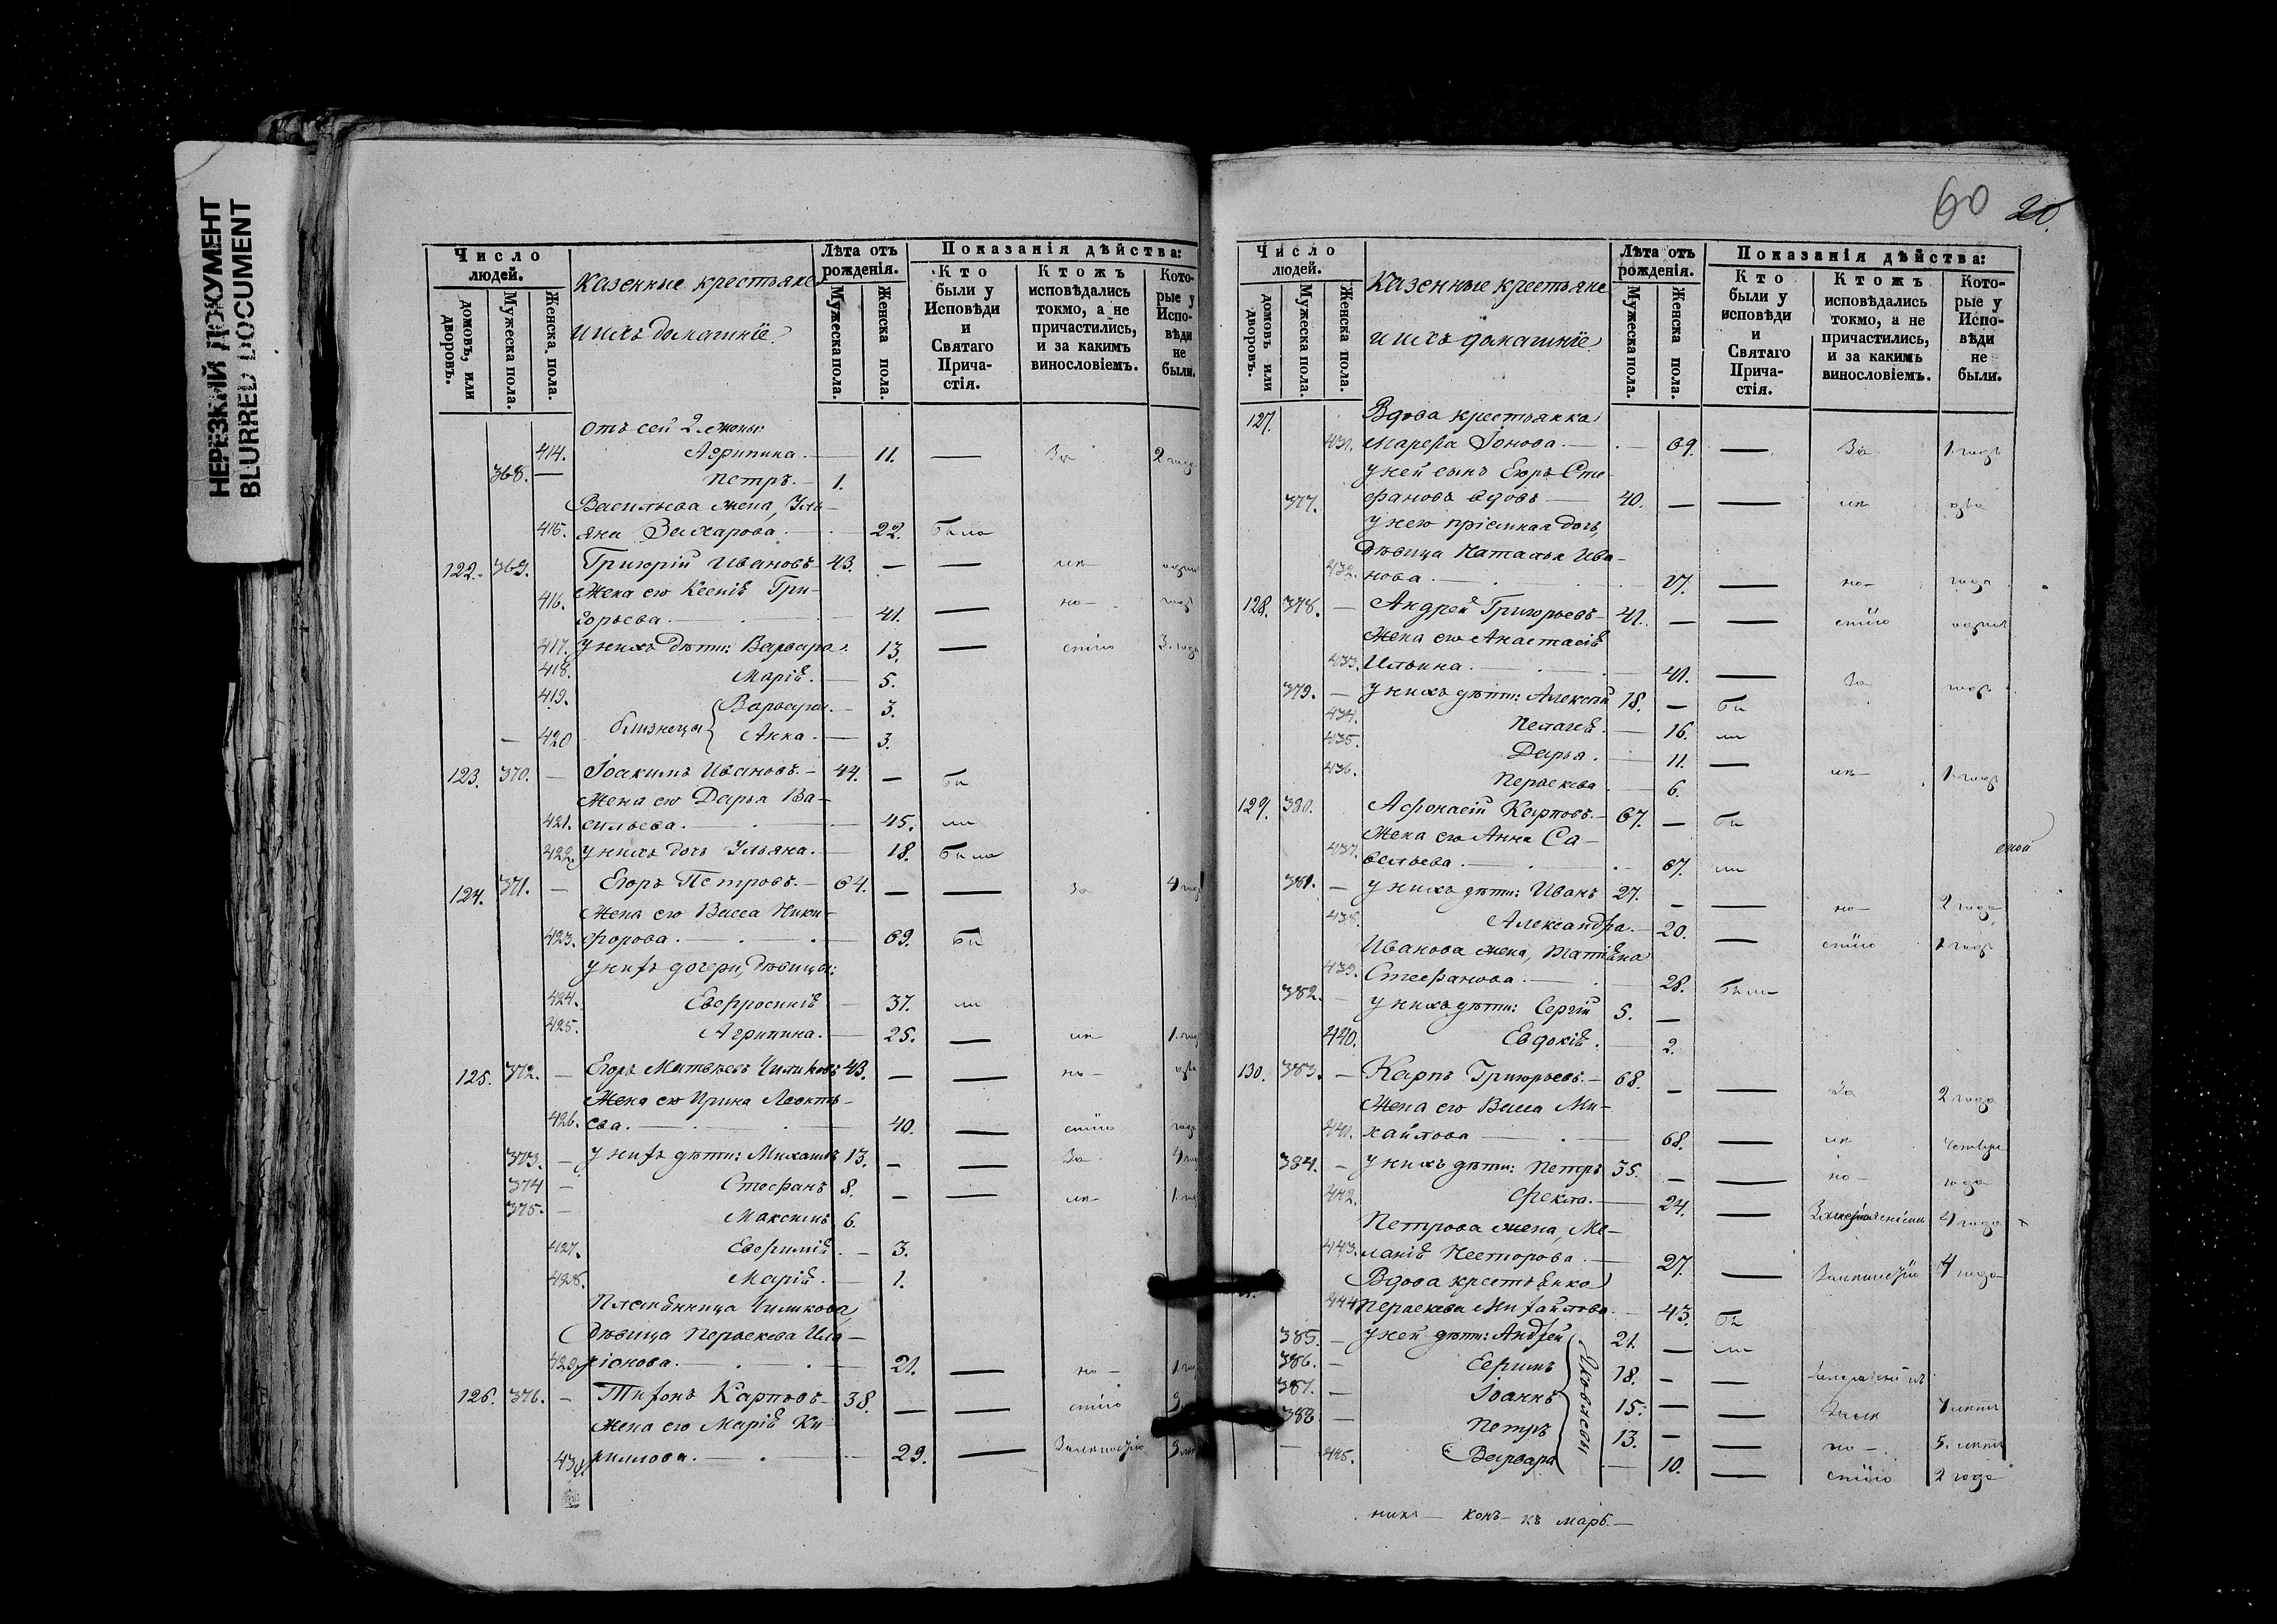 НЕРЕЗКИЙ ДОКУМЕНТ
BLURRED DOCUMENT
Число людей.
домовъ, или дворовъ.
Мужеска пола.
Женска пола.
Казенные крестьяне
и ихъ домашніе.
Лѣта отъ рожденія.
Мужеска пола.
Женска пола.
Показанія дѣйства:
Кто были у Исповѣди и Святаго Прича-стія.
Ктожъ исповѣдались токмо, а не причастились, и за какимъ винословіемъ.
Кото-рые у Испо-вѣди не были.
отъ сей 2 жены:
414. Агрипина. — 11. — За 2 года
368. — Петръ. — 1.
Васильева жена, Уль-
415. яна Захарова. — 22. была
122. 369. Григорій Ивановъ — 43. — —
Жена его Ксенія Гри-
416. горьева. — 41. — но —
417. у нихъ дѣти: Варвара. 13. — стію 3. года
418. Марія. — 5.
419. Варвара. — 3.
близнецы
— 420 Анна. — 3.
123. 370. — Іоакимъ Ивановъ. — 44. — бы
Жена его Дарья Ва-
421. сильева. — 45. ли
422. у нихъ дочь Ульяна. — 18. была
124. 371. — Егоръ Петровъ. — 64. — — За 4 года
Жена его Васса Ники-
423. форова. — 69. бы
у нихъ дочери, дѣвицы:
424. Евфросинія — 37. ли
425. Агрипина. — 25. — 1. год
125. 372. — Егоръ Матвѣевъ Чиликовъ 43. — — но —
Жена его Ирина Леонть-
426. ева. — 40. — стію
373. — у нихъ дѣти: Михаилъ 13. — — За
374 — Стефанъ 8. — —
375. — Максимъ 6.
427. Евфимія. — 3.
428. Марія. — 1.
Племянница Чиликова,
дѣвица Параскева Ила-
429. ріонова. — 21. — но —
126. 376. — Тихонъ Карповъ — 38. — — стію
Жена его Марія Ки-
430. риллова. — 29. —
60 20.
Число людей.
домовъ или дворовъ.
Мужеска пола.
Женска пола.
Казенные крестьяне
и ихъ домашніе.
Лѣта отъ рожденія.
Мужеска пола.
Женска пола.
Показанія дѣйства:
Кто были у исповѣди и Святаго Прича-стія.
Ктожъ исповѣдались токмо, а не причастились, и за какимъ винословіемъ.
Кото-рые у Испо-вѣди не были.
127. Вдова крестьянка
431. Марфа Іонова. — 69. — За 1 годъ
у ней сынъ Егоръ Сте-
377. фановъ вдовъ — 40. — —
у него пріемная дочь,
дѣвица Наталья Ива-
432. нова. — 17. — но — года
128. 378. — Андрей Григорьевъ — 41. — — стію
Жена его Анастасія
433. Ильина. — 41. — За
379. — у нихъ дѣти: Алексѣй 18. — бы
434. Пелагея. — 16. ли
435. Дарья. — 11. —
436. Параскева — 6.
129. 380. Афонасій Карповъ. — 67. — бы
Жена его Анна Са-
437. вельева. — 67. ли
381. — у нихъ дѣти: Иванъ 27. — — но — 2 года
438. Александра. — 20. — стію 1 годъ
Иванова жена, Татіяна
439. Стефанова. — 28. была
382. — у нихъ дѣти: Сергій 5. —
440. Евдокія. — 2.
130. 383. — Карпъ Григорьевъ. — 68. — — За 2 года
Жена его Васса Ми-
441. хайлова — 68. — четыре
384. — у нихъ дѣти: Петръ 35. — — но — года
442. Фекла. — 24. — 4 года
Петрова жена, Ме-
443. ланія Несторова. — 27. — 4 года
Вдова крестьянка
444 Параскева Михайлова. — 43. бы
385. — у ней дѣти: Андрей 21. — ли
386. — Ефимъ 18. — —
387. — Іоаннъ 15. — —
388 — Петръ 13. — — но — 5. лѣтъ
— 445. Варвара — 10. — стію 2 года
Яковлевы